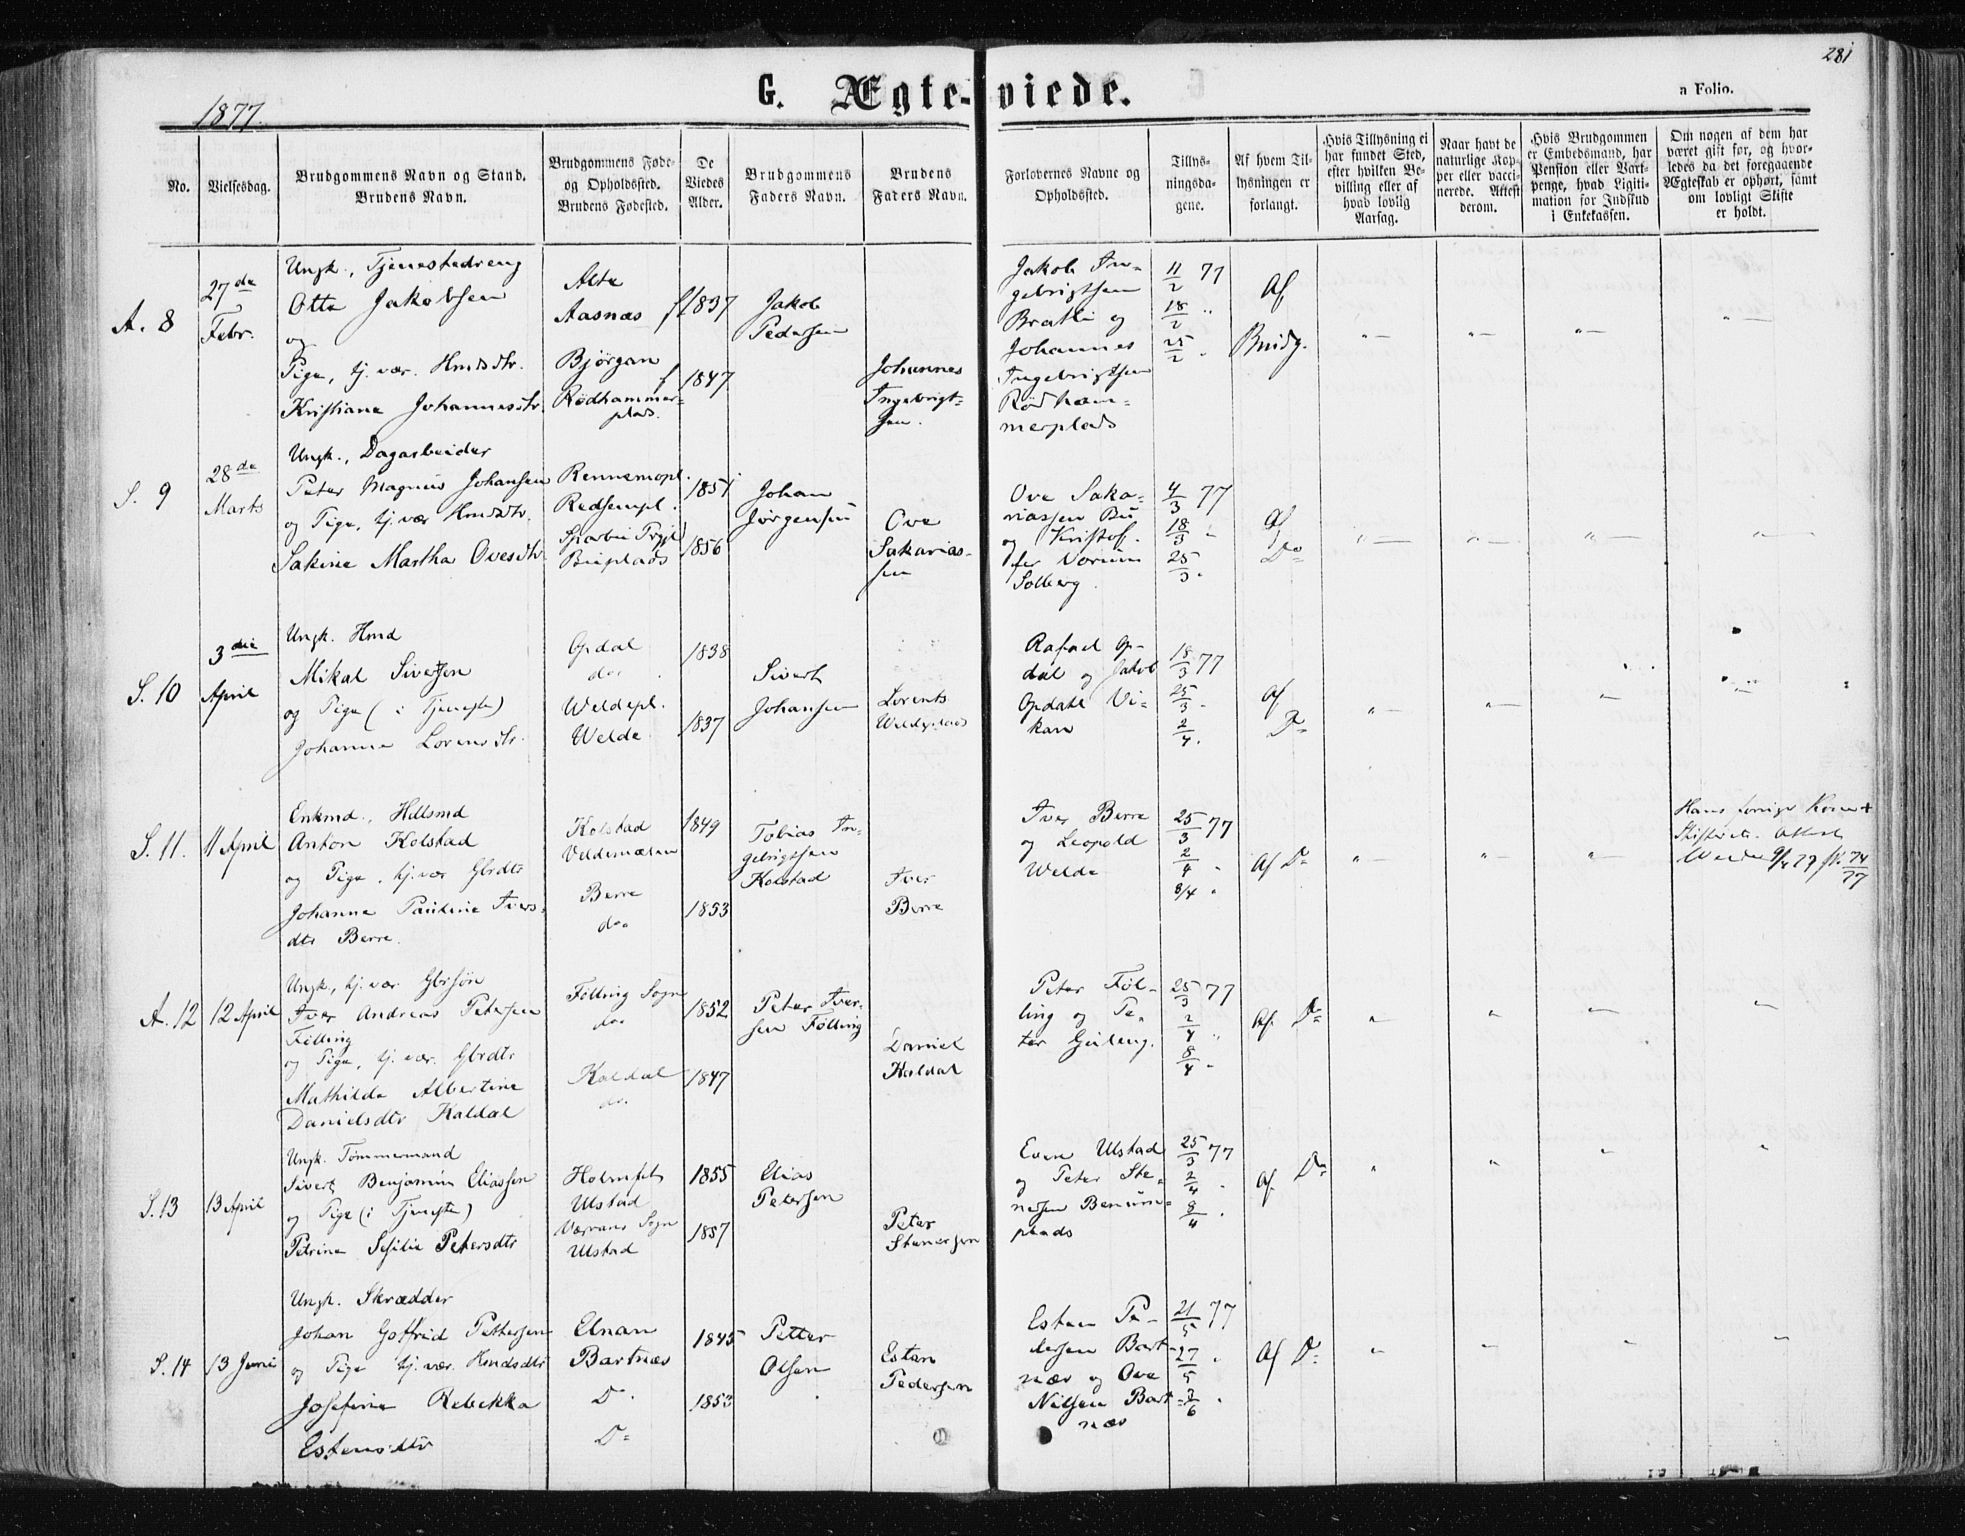 281
G. Ægte-viede.
a Folio.
1877.
No.
Vielsesdag.
Brudgommens Navn og Stand.
Brudens Navn.
Brudgommens Føde-
og Opholdssted.
Brudens Fødested.
De
Viedes
Alder.
Brudgommens
Faders Navn.
Brudens
Faders Navn.
Forlovernes Navne og
Opholdssted.
Tillys-
ningsda-
gene.
Af hvem Til-
lysningen er
forlangt.
Hvis Tillysning ei
har fundet Sted,
efter hvilken Be-
villing eller af
hvad lovlig
Aarsag.
Naar havt de
naturlige Kop-
per eller vacci-
nerede. Attest
derom.
Hvis Brudgommen
er Embedsmand, har
Pension eller Vart-
penge, hvad Ligiti-
mation for Indskud
i Enkekassen.
Om nogen af dem har
været gift før, og hvor-
ledes da det foregaaende
Ægteskab er ophørt, samt
om lovligt Skifte
er holdt.
A. 8
27de
Febr.
Ungk., Tjenestedreng
Otto Jakobsen
og
Pige, tj. vær. Hmdsdtr.
Kristiane Johannesdtr.
Alte
Aasnæs
Bjørgan
Rødhammer-
plads.
1837
1847
Jakob
Pedersen
Johannes
Ingebrigt-
sen.
Jakob In-
gebrigtsen
Bratli og
Johannes
Ingebrigtsen
Rødham-
merplads
11/2 77
18/2 "
25/2 "
Af
Brudg.
S. 9
28de
Marts
Ungk., Dagarbeider
Peter Magnus Johansen
og Pige, tj. vær Hmdsdtr.
Sakine Martha Ovesdtr.
Rennemopl.
Redsempl.
Sparbu Prgjl
Buplads
1851
1856
Johan
Jørgensen
Ove
Sakarias-
sen
Ove Saka-
riassen Bu
og Kristof-
fer
Solberg.
4/3 77
18/3 "
25/3 "
Af
Do
S. 10
3die
April
Ungk. Hmd
Mikal Sivertsen
og Pige (i Tjeneste)
Johanna Lorensdtr.
Opdal
do.
Weldepl.
Welde.
1838
1837
Sivert
Johansen
Lorents
Weldeplads
Rafael Op-
dal og Jakob
Opdahl Vi-
kan
18/3 77
25/3 "
2/4 "
Af
Do
S. 11.
11 April
Enkmd., Hdlsmd
Anton Kolstad
og Pige, tj. vær Gbrdtr
Johanna Pauline Ivers-
dtr Berre.
Kolstad
Veldemælen
Berre
do.
1849
1853
Tobias In-
gebrigtsen
Kolstad
Iver
Berre
Iver Berre
og Leopold
Welde
25/3 77
2/4 "
8/4 "
Af Do
Hans forrige Kone +
Skifteatt. Attest
9/4 77 74/77
A. 12
12 April
Ungk., tj. vær. Gbrsøn
Iver Andreas Petersen
Følling
og Pige, tj. vær. Gbrdtr
Mathilde Albertine
Danielsdtr Kaldal
Følling Sogn
do.
Kaldal
do.
1852
1847
Peter Iver-
sen Følling
Daniel
Kaldal
Peter Føl-
ling og Pe-
ter Guleng.
25/3 77
2/4 "
8/4 "
Af. Do
S. 13
13 April
Ungk. Tømmermand
Sivert Benjamin Eliassen
og Pige (i Tjeneste)
Petrine Sesilie Petersdtr
Holmset
Ulstad
Værrans Sogn
Ulstad
1855
1857
Elias
Petersen
Peter
Stenersen
Even Ulstad
og Peter Ste-
nersen Benum-
plads
25/3 77
2/4 "
8/4 "
Af. Do
S. 14
13 Juni
Ungk. Skrædder
Johan Gotfred Pettersen
og Pige tj. vær. Hmdsdtr
Josefine Rebekka
Estensdtr
Elnan
Bartnæs
Do
Do
1845
1853
Petter
Olsen
Esten
Pedersen
Esten Pe-
dersen Bart-
næs og Ove
Nilsen Bart-
næs
21/5 77
27/5 "
3/6 "
Af Do